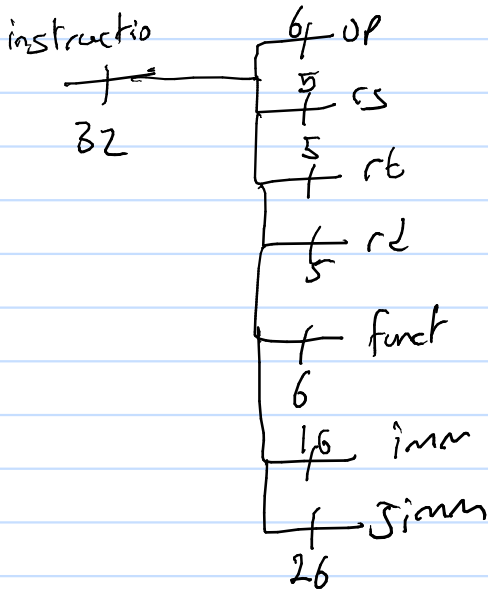 instructio
32
6 op
5 rs
5 rt
rd
5
funct
6
16 imm
Jimm
26